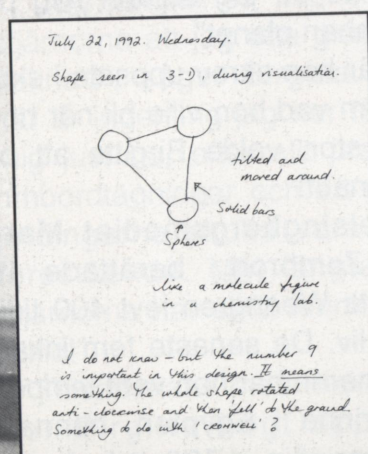 July 22, 1992. Wednesday.
Shape seen in 3-D during visualisation.
tilted and
moved around.
Solid bars
Spheres
like a molecule figure
in a chemistry lab.
I do not know - but the number 9
is important in this design. It means
something. The whole shape rotated
anti-clockwise and then 'fell' to the ground.
Something to do with 'CROMWELL' ?